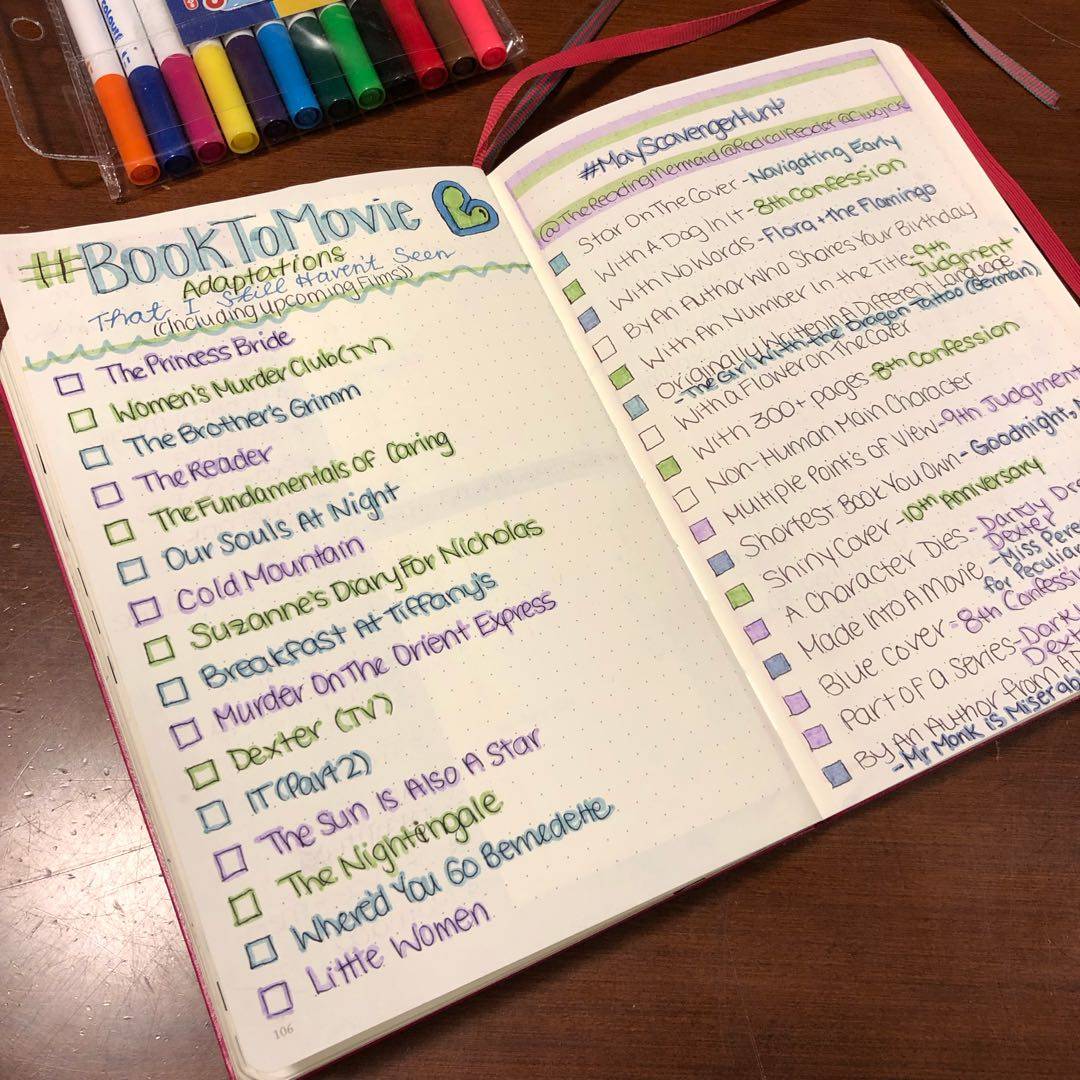 #BookToMovie
Adaptations
That I Still Haven't Seen
(Including Upcoming Films)
The Princess Bride
Women's Murder Club (TV)
The Brother's Grimm
The Reader
The Fundamentals of Caring
Our Souls At Night
Cold Mountain
Suzanne's Diary For Nicholas
Breakfast At Tiffany's
Murder On The Orient Express
Dexter (TV)
IT (Part 2)
The Sun Is Also A Star
The Nightingale
Where'd You Go Bernedette
Little Women
106
#MayScavengerHunt
@TheReadingMermaid @RadicalReader
Star On The Cover - Navigating Early
With A Dog In It - 8th Confession
With No Words - Flora + the Flamingo
By An Author Who Shares Your Birthday
With An Number In the Title - 9th
Judgment
Originally Written In A Different Language
- The Girl With the Dragon Tattoo (German)
With a Flower on The Cover
With 300+ pages - 8th Confession
Non-Human Main Character
Multiple Point's of View - 9th Judgment
Shortest Book You Own - Goodnight,
Shiny Cover - 10th Anniversary
A Character Dies - Darkly
Dexter
Made Into A Movie - Miss Pere
for Peculiar
Blue Cover - 8th Confessi
Part of a Series -
By An Author From A
- Mr Monk is Miserab